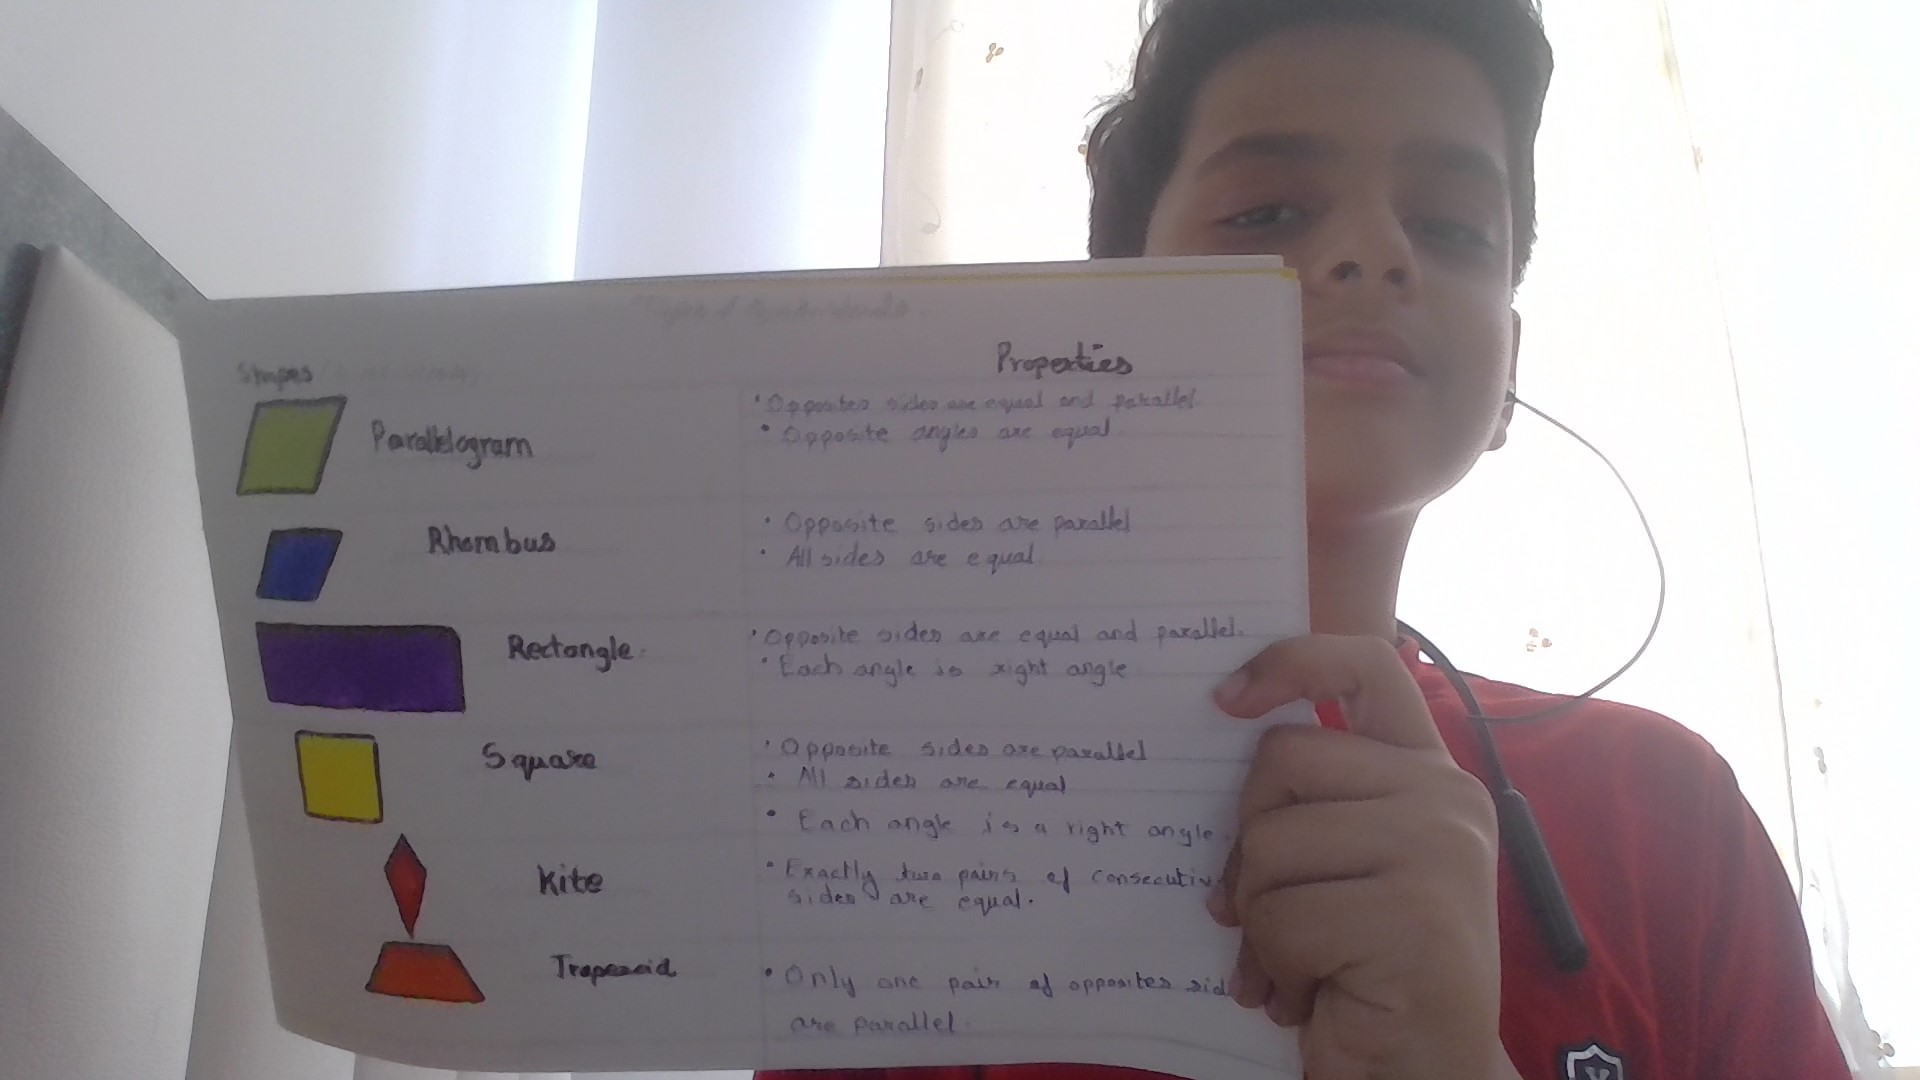 Types of Quadrilaterals
Shapes
Properties
Parallelogram
• Opposites sides are equal and parallel
• Opposite angles are equal
Rhombus
• Opposite sides are parallel
• All sides are equal
Rectangle
• Opposite sides are equal and parallel.
• Each angle is right angle
Square
• Opposite sides are parallel
• All sides are equal
• Each angle is a right angle.
Kite
• Exactly two pairs of consecutiv
sides are equal.
Trapezoid
• Only one pair of opposites sid
are parallel.